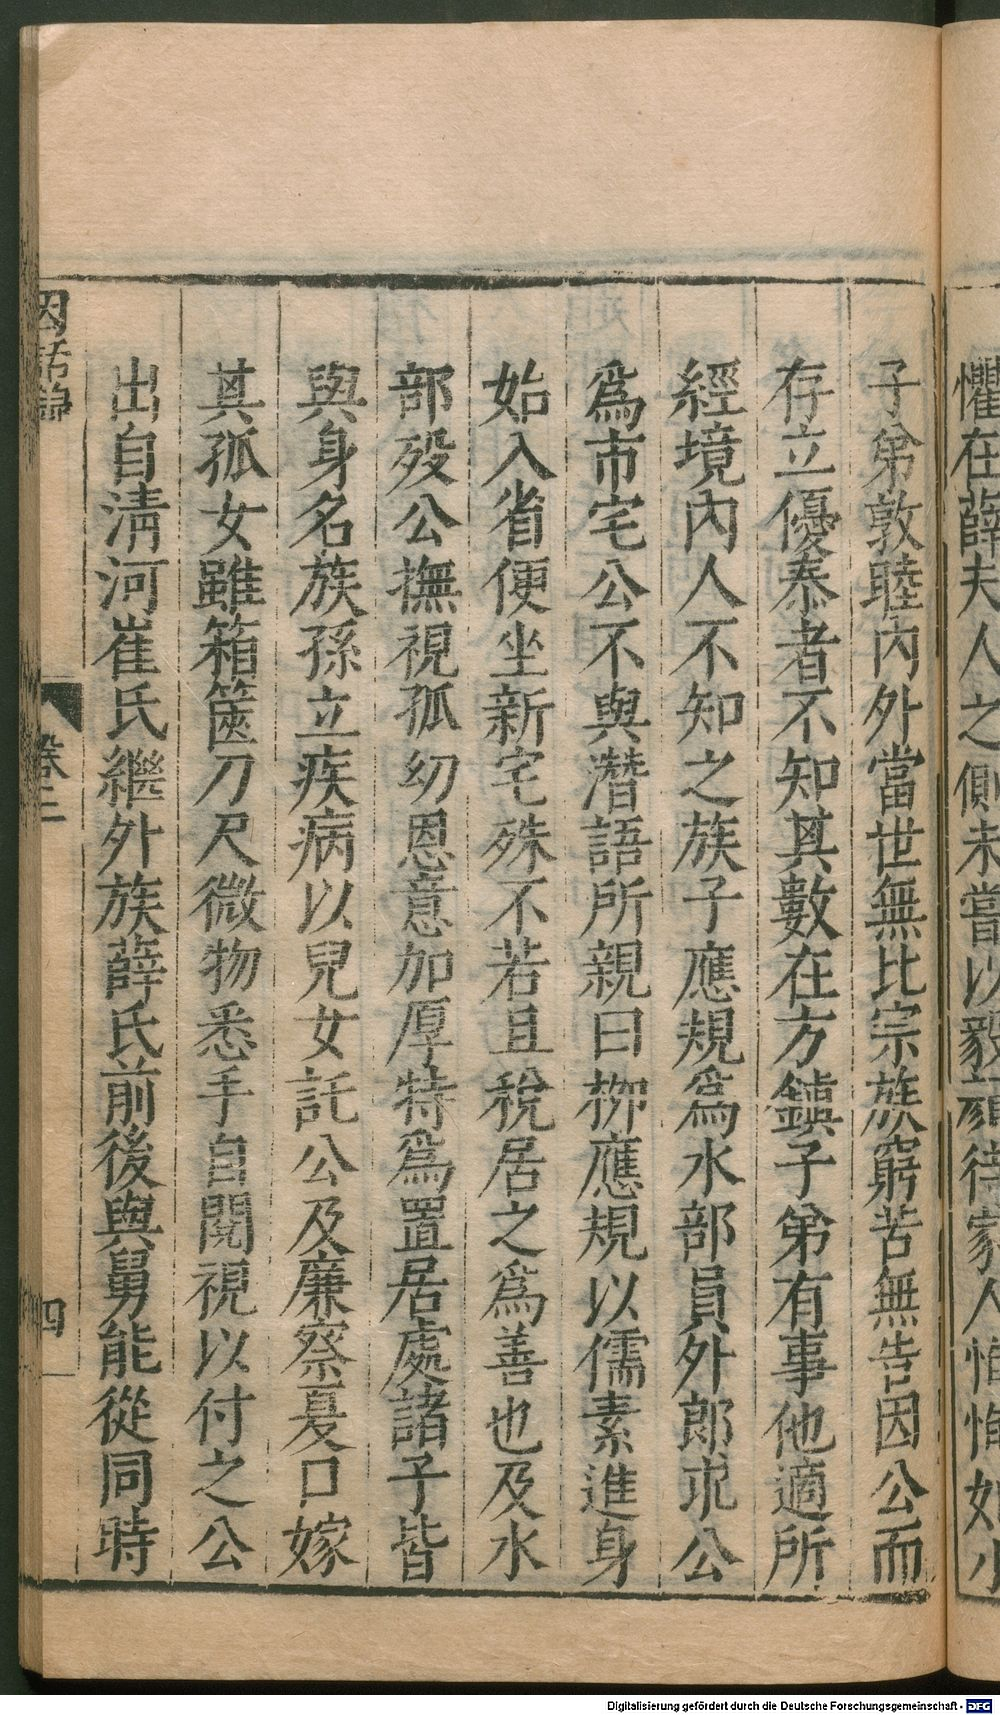 懼在薛夫人之側未嘗以毅顏待家人恂恂如小
子弟敦睦內外當世無比宗族窮苦無告因公而
存立優泰者不知其數在方鎮子弟有事他適所
經境內人不知之族子應規爲水部員外郎求公
爲市宅公不與潛語所親曰柳應規以儒素進身
始入省便坐新宅殊不若且稅居之爲善也及水
部歿公撫視孤幼恩意加厚特爲置居處諸子皆
與身名族孫立疾病以兒女託公及廉察夏口嫁
其孤女雖箱篋刀尺微物悉手自閱視以付之公
出自清河崔氏繼外族薛氏前後與舅能從同時
因話錄
卷二
四
Digitalisierung gefördert durch die Deutsche Forschungsgemeinschaft - DFG